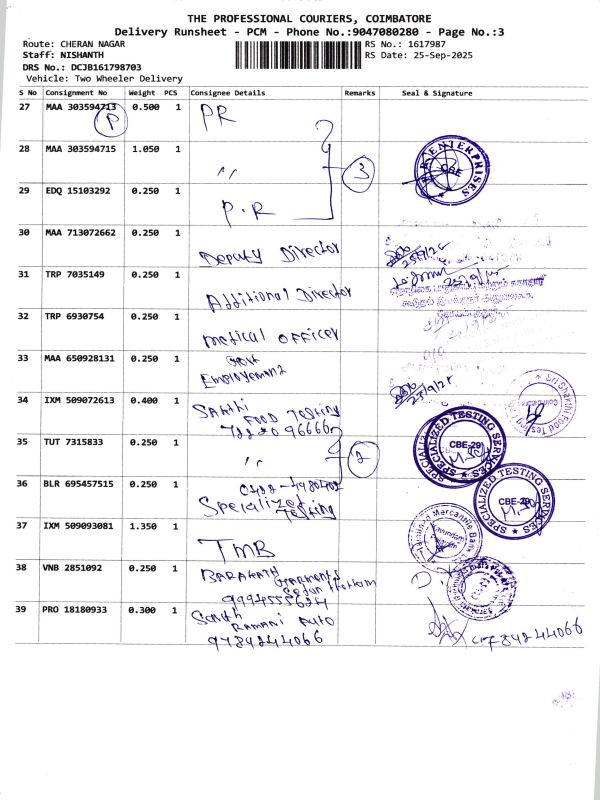 THE PROFESSIONAL COURIERS, COIMBATORE
Delivery Runsheet - PCM - Phone No.:9047080280 - Page No.:3
Route: CHERAN NAGAR
Staff: NISHANTH
DRS No.: DCJB161798703
Vehicle: Two Wheeler Delivery
RS No.: 1617987
RS Date: 25-Sep-2025
S No Consignment No Weight PCS Consignee Details Remarks Seal & Signature
27 MAA 303594713 0.500 1 PR
P
28 MAA 303594715 1.050 1 〃
3
ENTERPRISES
CBE
29 EDQ 15103292 0.250 1 P.R
30 MAA 713072662 0.250 1 Deputy Director
25/9/25
31 TRP 7035149 0.250 1 Additional Director
32 TRP 6930754 0.250 1 Medical Officer
33 MAA 650928131 0.250 1 Govt
Employement
25/9/25
34 IXM 509072613 0.400 1 Sakthi
Food Testing
Sri Shakthi Food Testing
35 TUT 7315833 0.250 1 〃
2
SPECIALIZED TESTING SERVICES
CBE-29
36 BLR 695457515 0.250 1
Specialized
Testing
SPECIALIZED TESTING SERVICES
CBE-29
37 IXM 509093081 1.350 1 TMB
Tamilnad Mercantile Bank
38 VNB 2851092 0.250 1 Barakath Garments
39 PRO 18180933 0.300 1
Ramani Auto
9784244066
9784244066